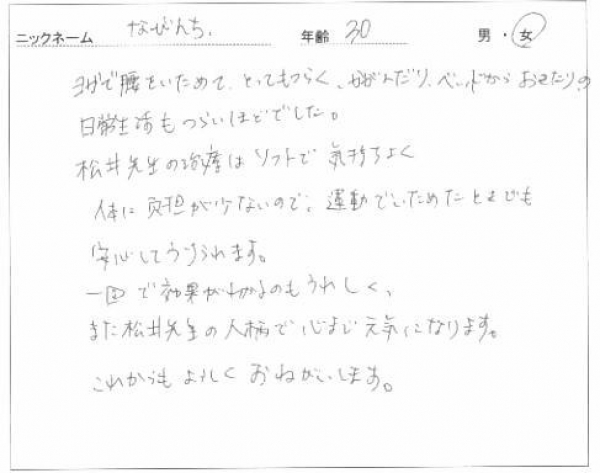 ニックネーム なびんち. 年齢 30 男・女
ヨガで腰をいためて、とってもつらく、かがんだり、ベッドからおきたり、の
日常生活もつらいほどでした。
松井先生の治療はソフトで気持ちよく
人体に負担が少ないので、運動でいためたときでも
安心してうけられます。
一回で効果がわかるのもうれしく、
また松井先生の人柄で心まで元気になります。
これからもよろしくおねがいします。